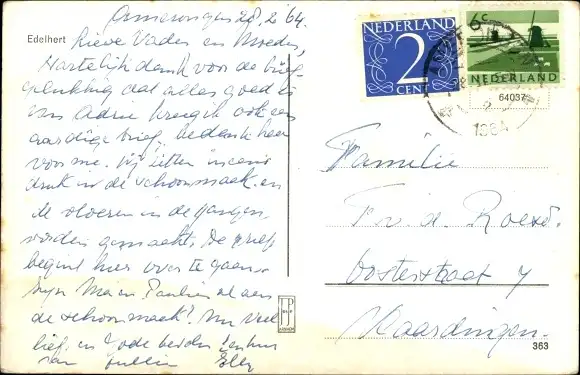 Amerongen 28.2 '64.
Edelhert
Lieve Vader en Moeder,
Hartelijk dank voor de brief
gelukkig dat alles goed is
van Adrie kreeg ik ook een
aardige brief, bedank haar
voor me. Wij zitten ineens
druk in de schoonmaak en
de vloeren in de gangen
worden gemaakt. De griep
begint hier over te gaan.
Zijn Ma en Paulien al aan
de schoonmaak? Nu veel
liefs en Gode bevolen
van jullie Elly
NEDERLAND
2
CENT
6c
NEDERLAND
64037
1964
Familie
Oosterstraat 7
Vlaardingen.
363